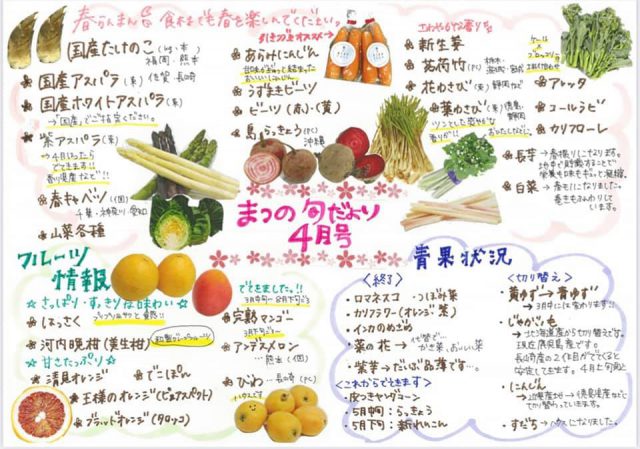 春らんまん 食材でも春を楽しんでください。
国産たけのこ(は・本)
福岡・熊本
国産アスパラ(束) 佐賀 長崎
国産ホワイトアスパラ(束)
→「国産」でご指定ください。
紫アスパラ(束)
→4月入ったら
でてきます!!
香川県産など!!
春キャベツ(個)
千葉・神奈川・愛知
山菜各種
引きつづきオススメ→
あらみにんじん
うずまきビーツ
ビーツ(赤)・(黄)
島らっきょう(PC)
沖縄
新生姜
茗荷竹(PC)
花わさび(PC) 静岡など
葉わさび
ケール
×
ブロッコリー
アレッタ
コールラビ
カリフローレ
長芋→春掘りになります。
白菜→春モノになりました。
まつの旬だより
4月号
フルーツ
情報
☆さっぱり・すっきりな味わい☆
はっさく
河内晩柑(美生柑)
和製グレープフルーツ
☆甘さたっぷり☆
清見オレンジ
でこぽん
王様のオレンジ(ピュアスペクト)
ブラッドオレンジ(タロッコ)
でてきました。!!
3月中旬〜8月下旬ごろ
完熟マンゴー
3月下旬ごろ〜
アンデスメロン
…熊本(個)
びわ…長崎(PC)
ハウスです
青果状況
<終了>
・ロマネスコ ・つぼみ菜
・カリフラワー(オレンジ・紫)
・インカのめざめ
・菜の花→代替で…
かき菜、おいしい菜
・紫芋→だいぶ品薄です…。
<これからでてきます>
・皮つきヤングコーン
・5月中旬:らっきょう
・5月下旬:新れんこん
<切り替え>
・黄ゆず→青ゆず
→3月中には変わります!!
・じゃがいも
→北海道産から切り替えです。
現在、鹿児島産です。
長崎産の2作目がでてくると
安定してきます。4月上旬頃と
・にんじん
→近県産地→徳島県産などに
切り替わっていきます。
・すだち→ハウスになりました。